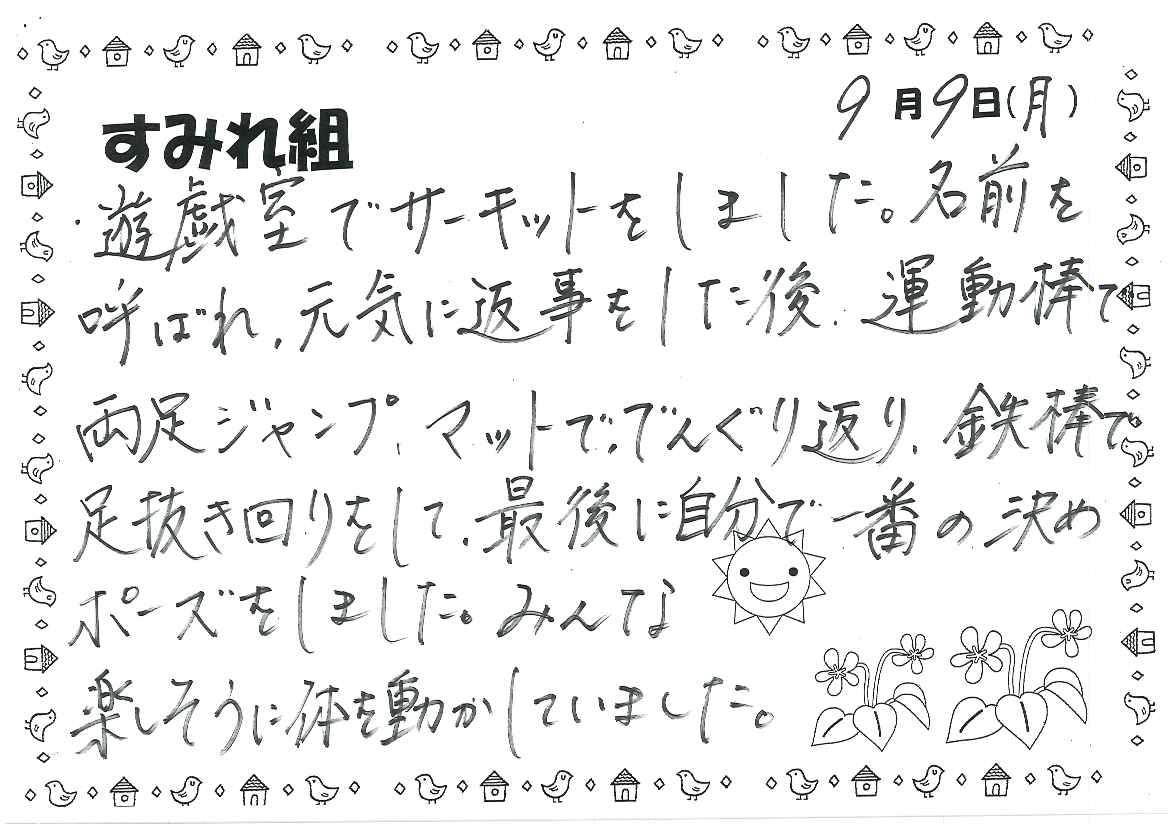 9月9日(月)
すみれ組
・遊戯室でサーキットをしました。名前を
呼ばれ、元気に返事をした後、運動棒で
両足ジャンプ、マットででんぐり返り、鉄棒で
足抜き回りをして、最後に自分で一番の決め
ポーズをしました。みんな
楽しそうに体を動かしていました。